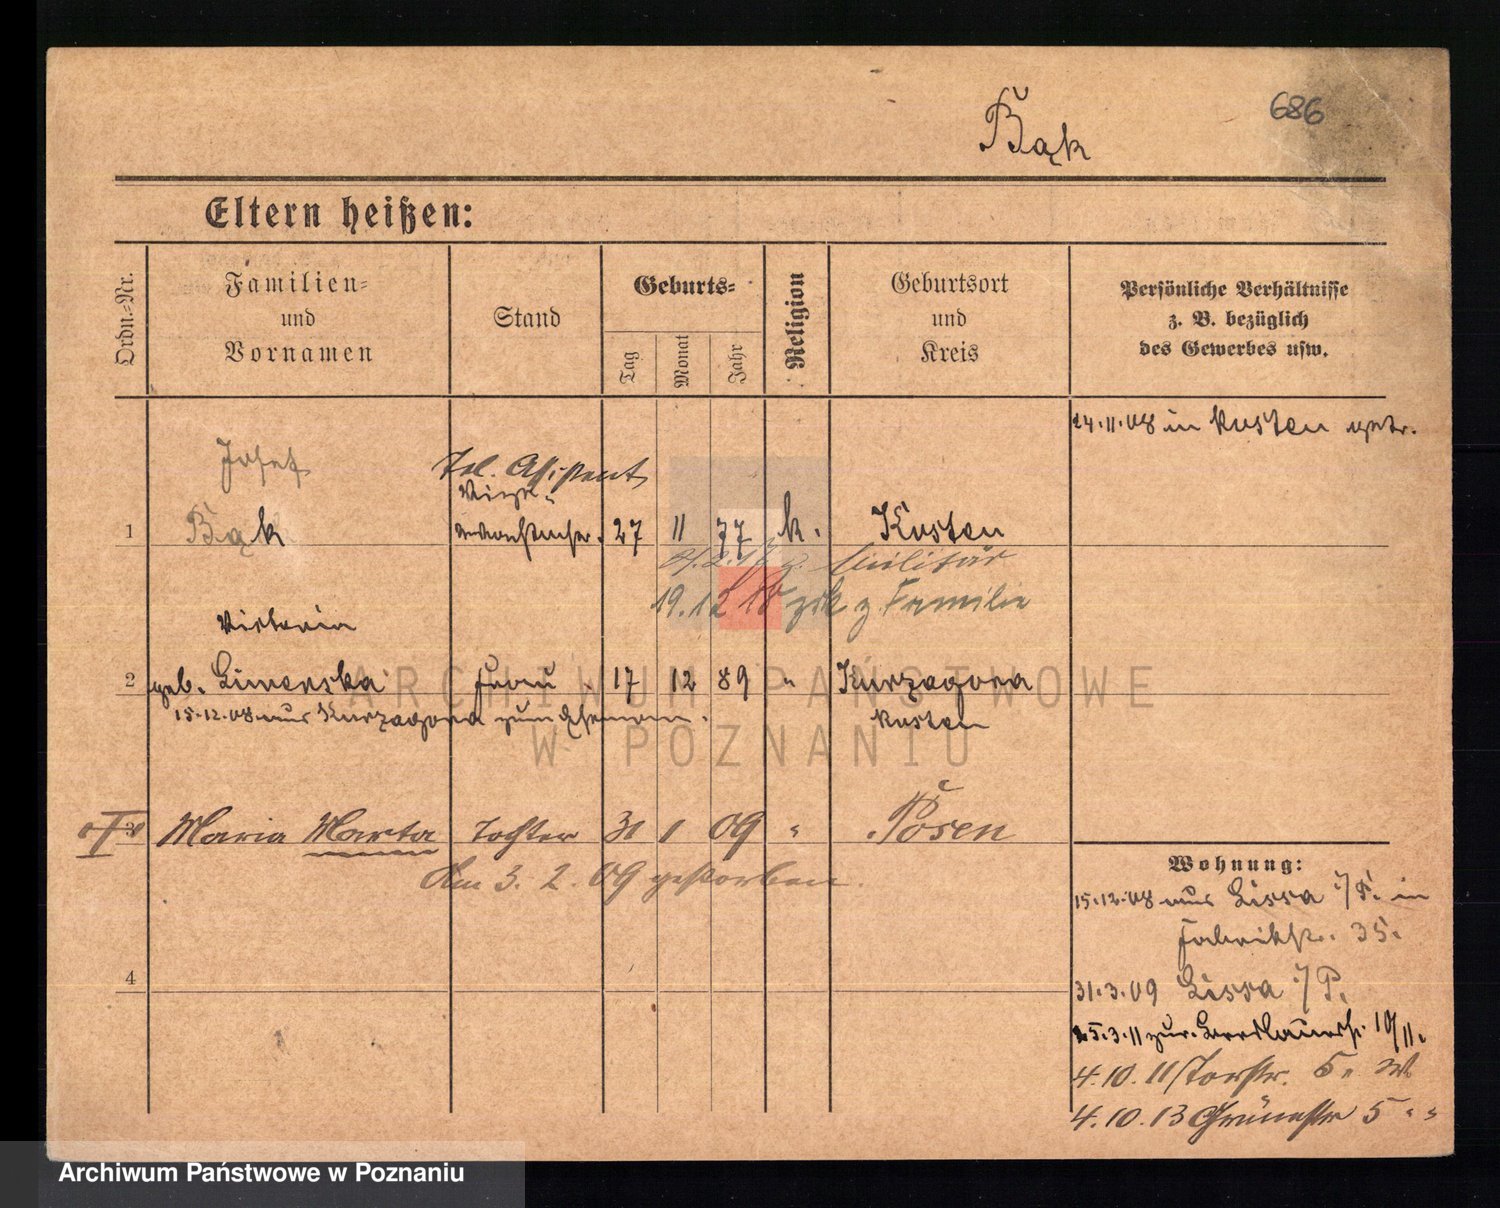 686
Bąk
Eltern heißen:
Ordn.-Nr.
Familien- und Vornamen
Stand
Geburts-
Tag
Monat
Jahr
Religion
Geburtsort und Kreis
Persönliche Verhältnisse z. B. bezüglich des Gewerbes usw.
24.11.08 in Kosten getr.
Josef
Tel. Assistent
Vize-
1 Bąk 27 11 77 k. Kosten
z. Militär
19.12.18 zrk z. Familie
Victoria
2 geb. Limerska Frau 17 12 89 " Kurzagora
15.12.08 aus Kurzagora zum Ehemann.
Kosten
3 Maria Marta Tochter 30 1 09 " Posen
Am 3. 2. 09 gestorben.
Wohnung:
15.12.08 aus Lissa i/P. in
Fabrikstr. 35.
4
31.3.09 Lissa i/P.
25.3.11 zur. 10/11.
4.10.11 Torstr. 5.
4.10.13 Grünestr 5 " "
ARCHIWUM PAŃSTWOWE
W POZNANIU
Archiwum Państwowe w Poznaniu